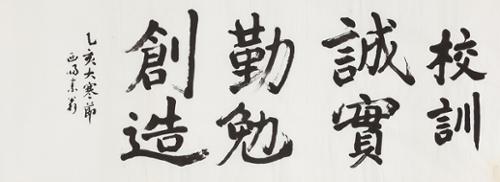 校訓
誠實
勤勉
創造
乙亥大寒節